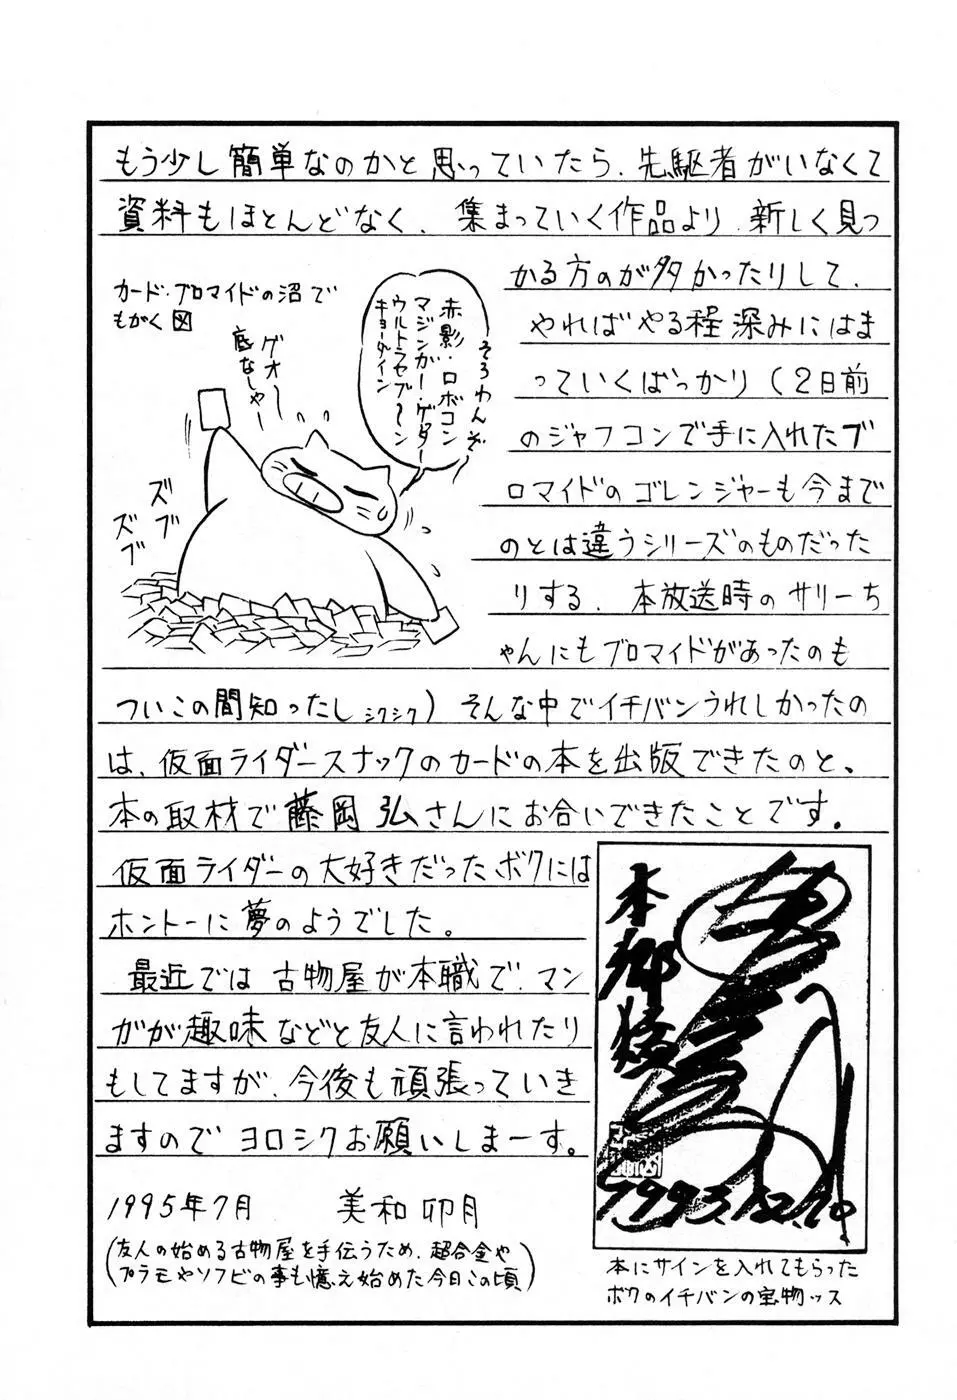 もう少し簡単なのかと思っていたら、先駆者がいなくて
資料もほとんどなく、集まっていく作品より、新しく見つ
かる方のが多かったりして、
やればやる程深みにはま
っていくばっかり(2日前
のジャフコンで手に入れたブ
ロマイドのゴレンジャーも今まで
のとは違うシリーズのものだった
りする、本放送時のサリーち
ゃんにもブロマイドがあったのも
ついこの間知ったし シクシク)そんな中でイチバンうれしかったの
は、仮面ライダースナックのカードの本を出版できたのと、
本の取材で藤岡弘さんにお合いできたことです。
仮面ライダーの大好きだったボクには
ホントーに夢のようでした。
最近では古物屋が本職で、マン
ガが趣味などと友人に言われたり
もしてますが、今後も頑張っていき
ますのでヨロシクお願いしまーす。
1995年7月 美和卯月
(友人の始める古物屋を手伝うため、超合金や
プラモやソフビの事も憶え始めた今日この頃)
カード・ブロマイドの沼で
もがく図
そろわんぞ〜
赤影・ロボコン
マジンガー・ゲッター
ウルトラセブ〜ン
キョーダイン
ゲオ〜
底なしや〜
ズブ
ズブ
本郷猛
1993.12.10
本にサインを入れてもらった
ボクのイチバンの宝物ッス